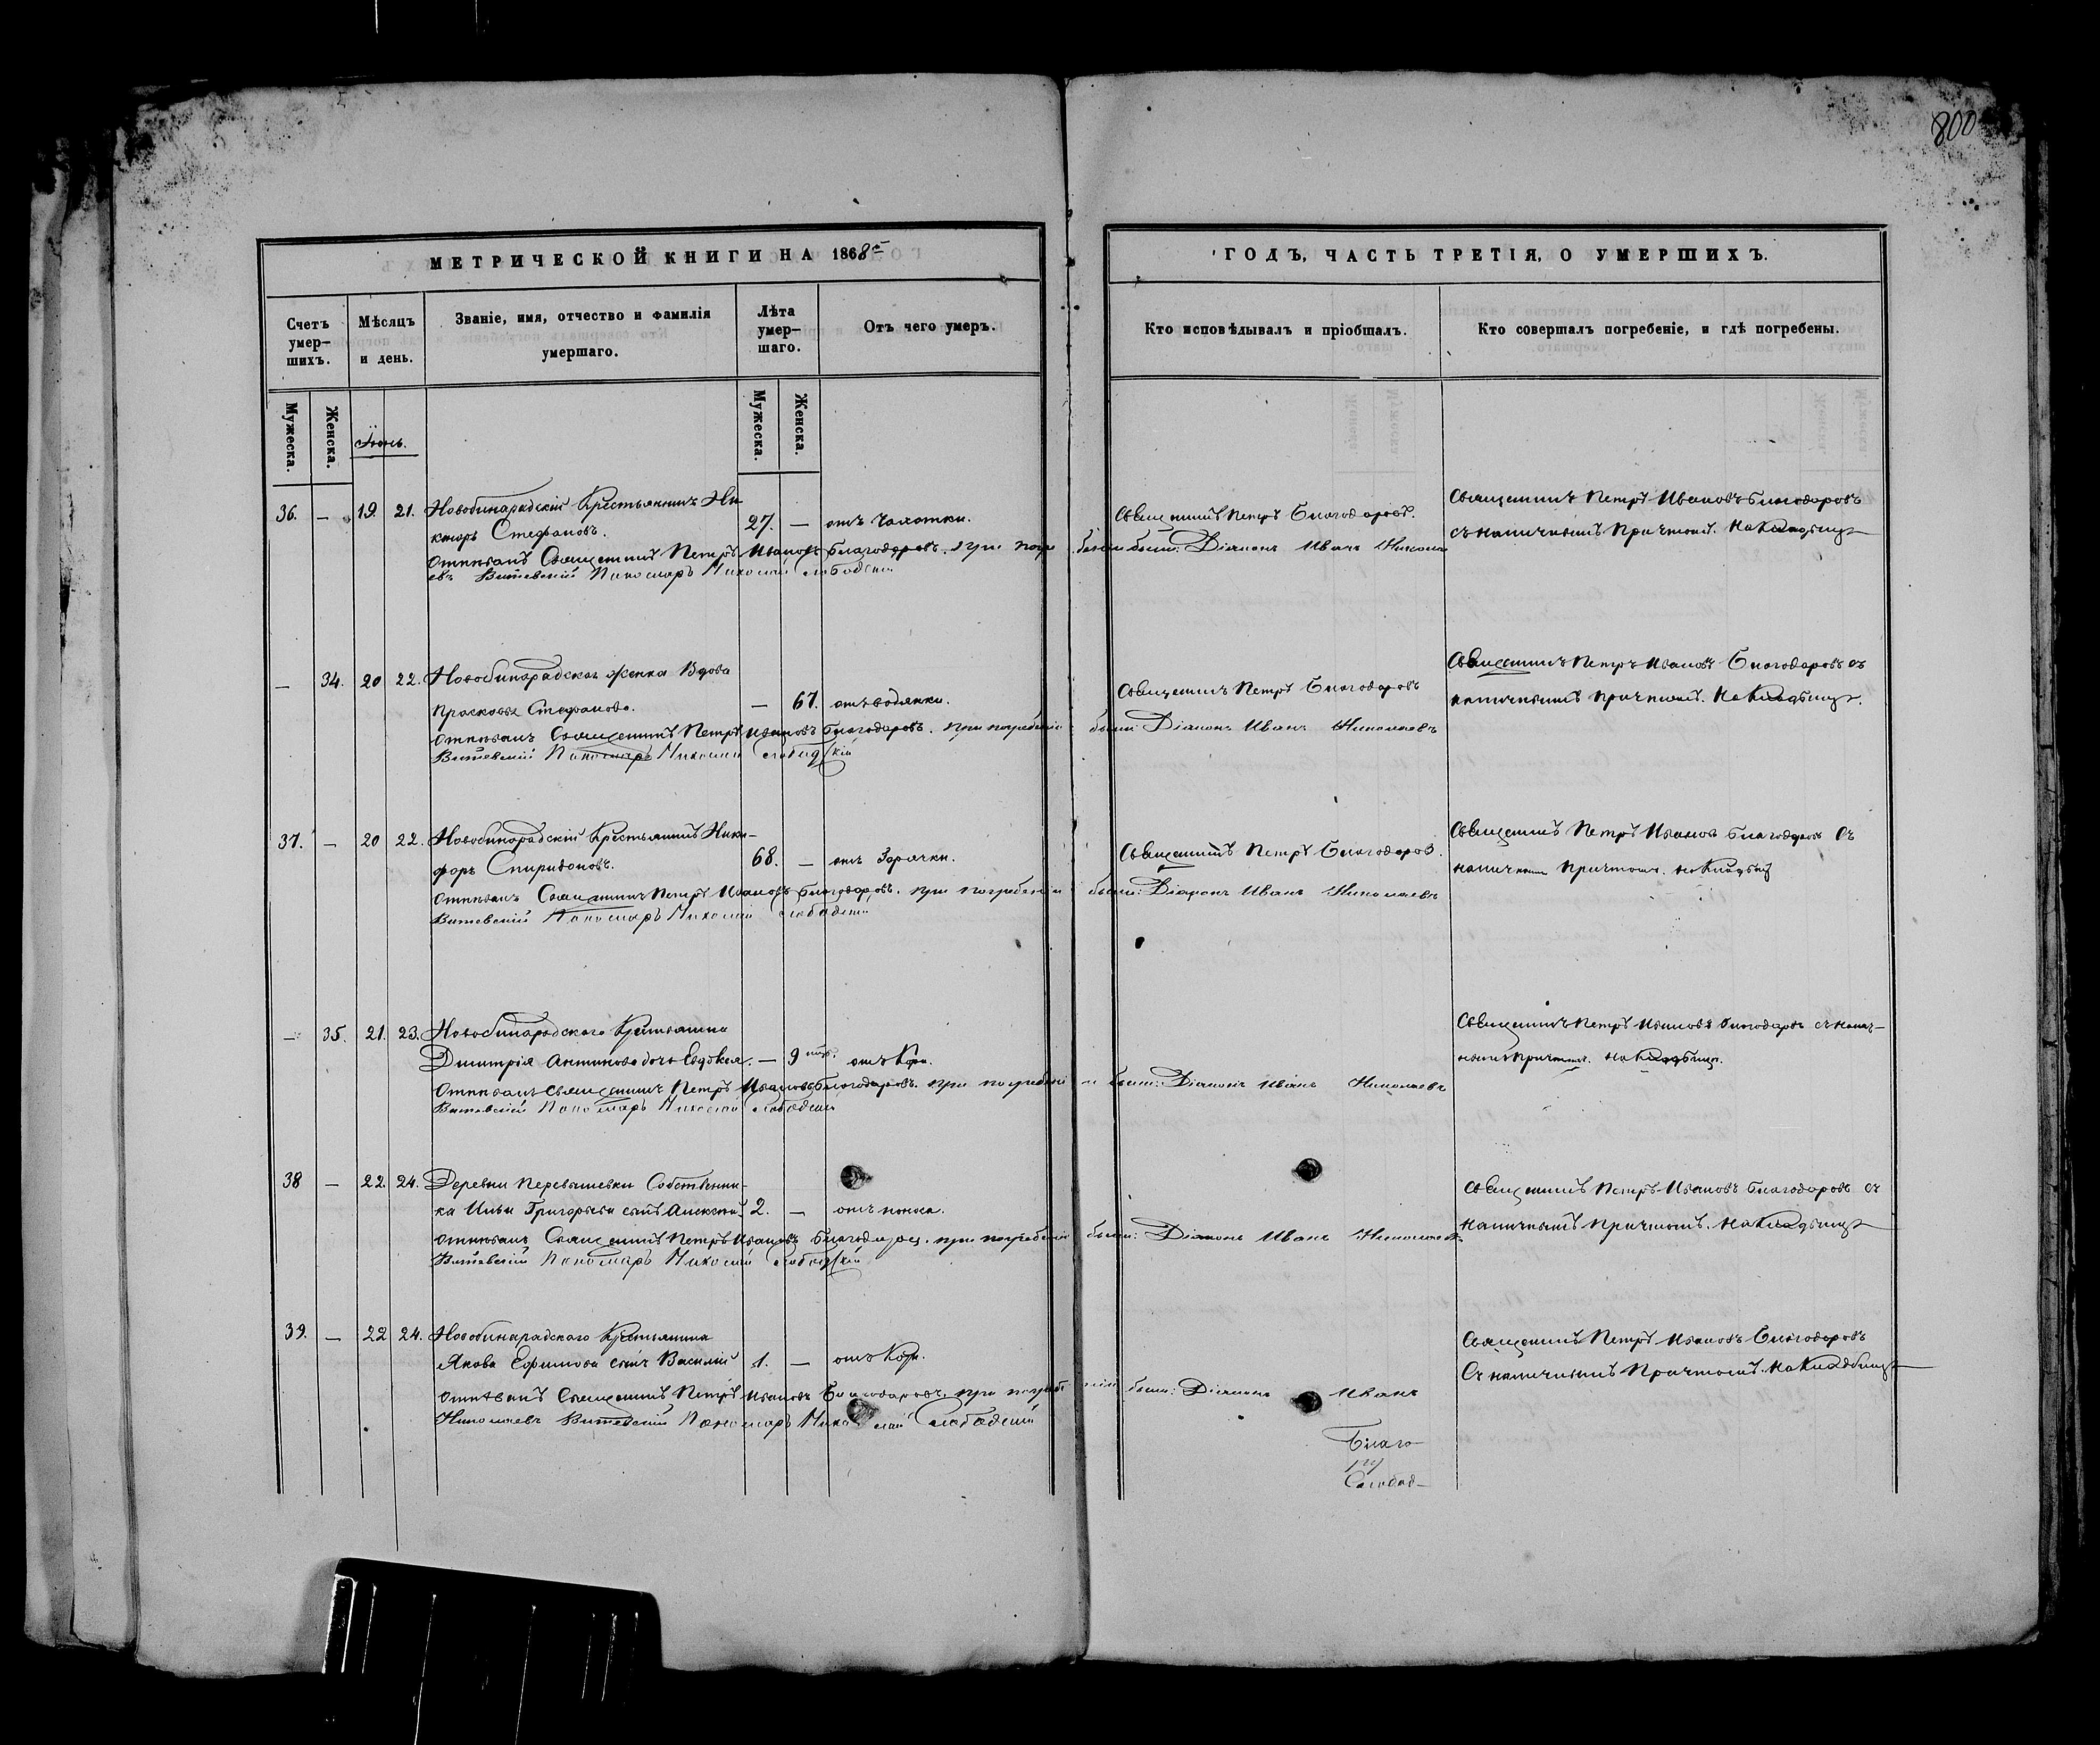 800
МЕТРИЧЕСКОЙ КНИГИ НА 1868й
ГОДЪ, ЧАСТЬ ТРЕТІЯ, О УМЕРШИХЪ.
Счетъ умер-шихъ.
Мѣсяцъ и день.
Званіе, имя, отчество и фамилія умершаго.
Лѣта умер-шаго.
Отъ чего умеръ.
Кто исповѣдывалъ и пріобщалъ.
Кто совершалъ погребеніе, и гдѣ погребены.
Мужеска.
Женска.
Мужеска.
Женска.
36. — 19. 21. Новобинарадскій Крестьянинъ Ни
кторъ Стефановъ. 27. — отъ чахотки.
Священникъ Петръ Благодаровъ.
Священникъ Петръ Ивановъ Благодаровъ
съ наличнымъ Причтомъ. На Кладбищѣ
Отпѣвалъ Священникъ Петръ Ивановъ Благодаровъ. при погребеніи были: Діаконъ Иванъ Никола
евъ Витевскій Пономарь Николай Слободскій
— 34. 20 22. Новобинарадская женка Вдова
Прасковья Стефанова. — 67. отъ водянки.
Священникъ Петръ Благодаровъ
Священникъ Петръ Ивановъ Благодаровъ съ
наличнымъ Причтомъ. На Кладбищѣ.
Отпѣвалъ Священникъ Петръ Ивановъ Благодаровъ. при погребеніи были: Діаконъ Иванъ Николаевъ
Витевскій Пономарь Николай Слободскій
37. — 20 22. Новобинарадскій Крестьянинъ Ники-
форъ Спиридоновъ. 68. — отъ Горячки.
Священникъ Петръ Благодаровъ.
Священникъ Петръ Ивановъ Благодаровъ съ
наличнымъ Причтомъ. на Кладбищѣ
Отпѣвалъ Священникъ Петръ Ивановъ Благодаровъ. при погребеніи были: Діаконъ Иванъ Николаевъ
Витевскій Пономарь Николай Слободскій
— 35. 21. 23. Новобинарадскаго Крестьянина
Димитрія Антипова дочь Евдокія. — 9 отъ Кори.
Священникъ Петръ Ивановъ Благодаровъ съ налич-
нымъ Причтомъ. на Кладбищѣ.
Отпѣвалъ Священникъ Петръ Ивановъ Благодаровъ. при погребеніи были: Діаконъ Иванъ Николаевъ
Витевскій Пономарь Николай Слободскій
38 — 22. 24. Деревни Перевышевки Собственни-
ка Ильи Григорьева сынъ Алексѣй. 2. — отъ поноса.
Священникъ Петръ Ивановъ Благодаровъ съ
наличнымъ Причтомъ. на Кладбищѣ
Отпѣвалъ Священникъ Петръ Ивановъ Благодаровъ. при погребеніи были: Діаконъ Иванъ Николаевъ
Витевскій Пономарь Николай Слободскій
39. — 22 24. Новобинарадскаго Крестьянина
Якова Ефимова сынъ Василій 1. — отъ Кори.
Священникъ Петръ Ивановъ Благодаровъ
Съ наличнымъ Причтомъ. на Кладбищѣ
Отпѣвалъ Священникъ Петръ Ивановъ Благодаровъ. при погребеніи были: Діаконъ Иванъ
Николаевъ Витевскій Пономарь Николай Слободскій
Благо